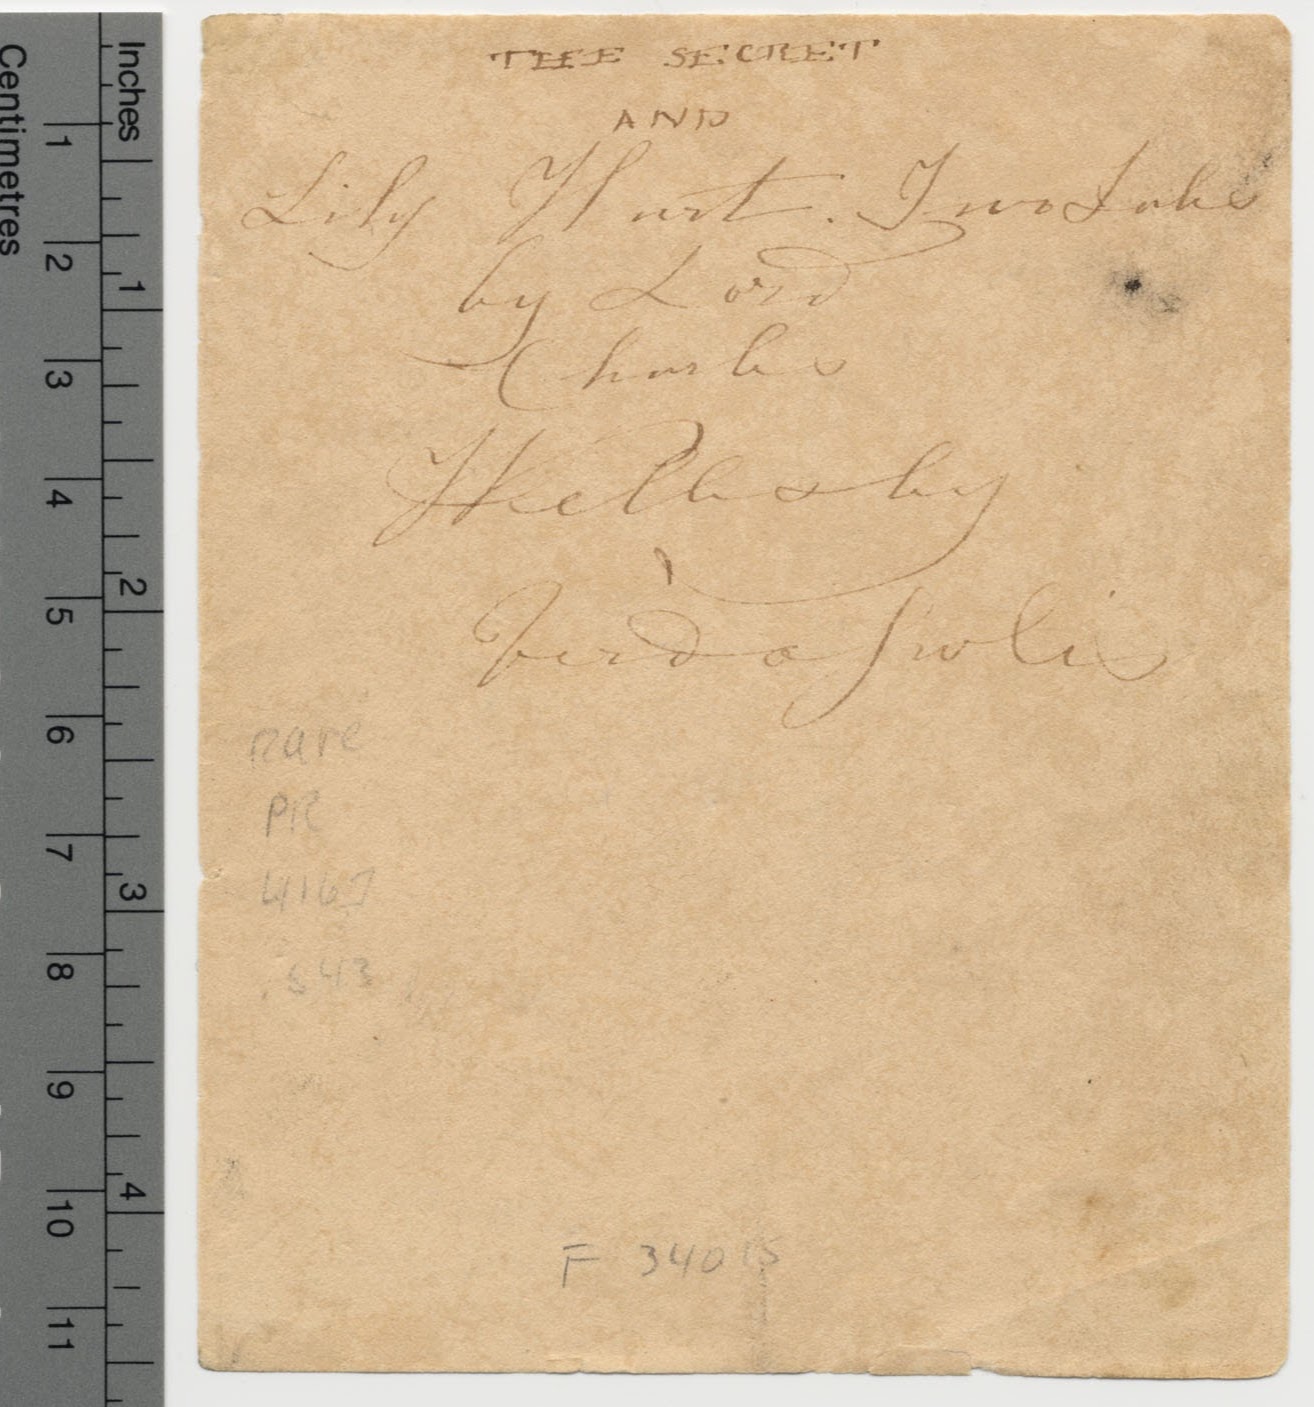 THE SECRET
AND
Lily Hart. Two Tales
by Lord
Charles
Wellesley
Verdopolis
rare
PR
4167
.S43
F 34015
Inches
1
2
3
4
Centimetres
1
2
3
4
5
6
7
8
9
10
11